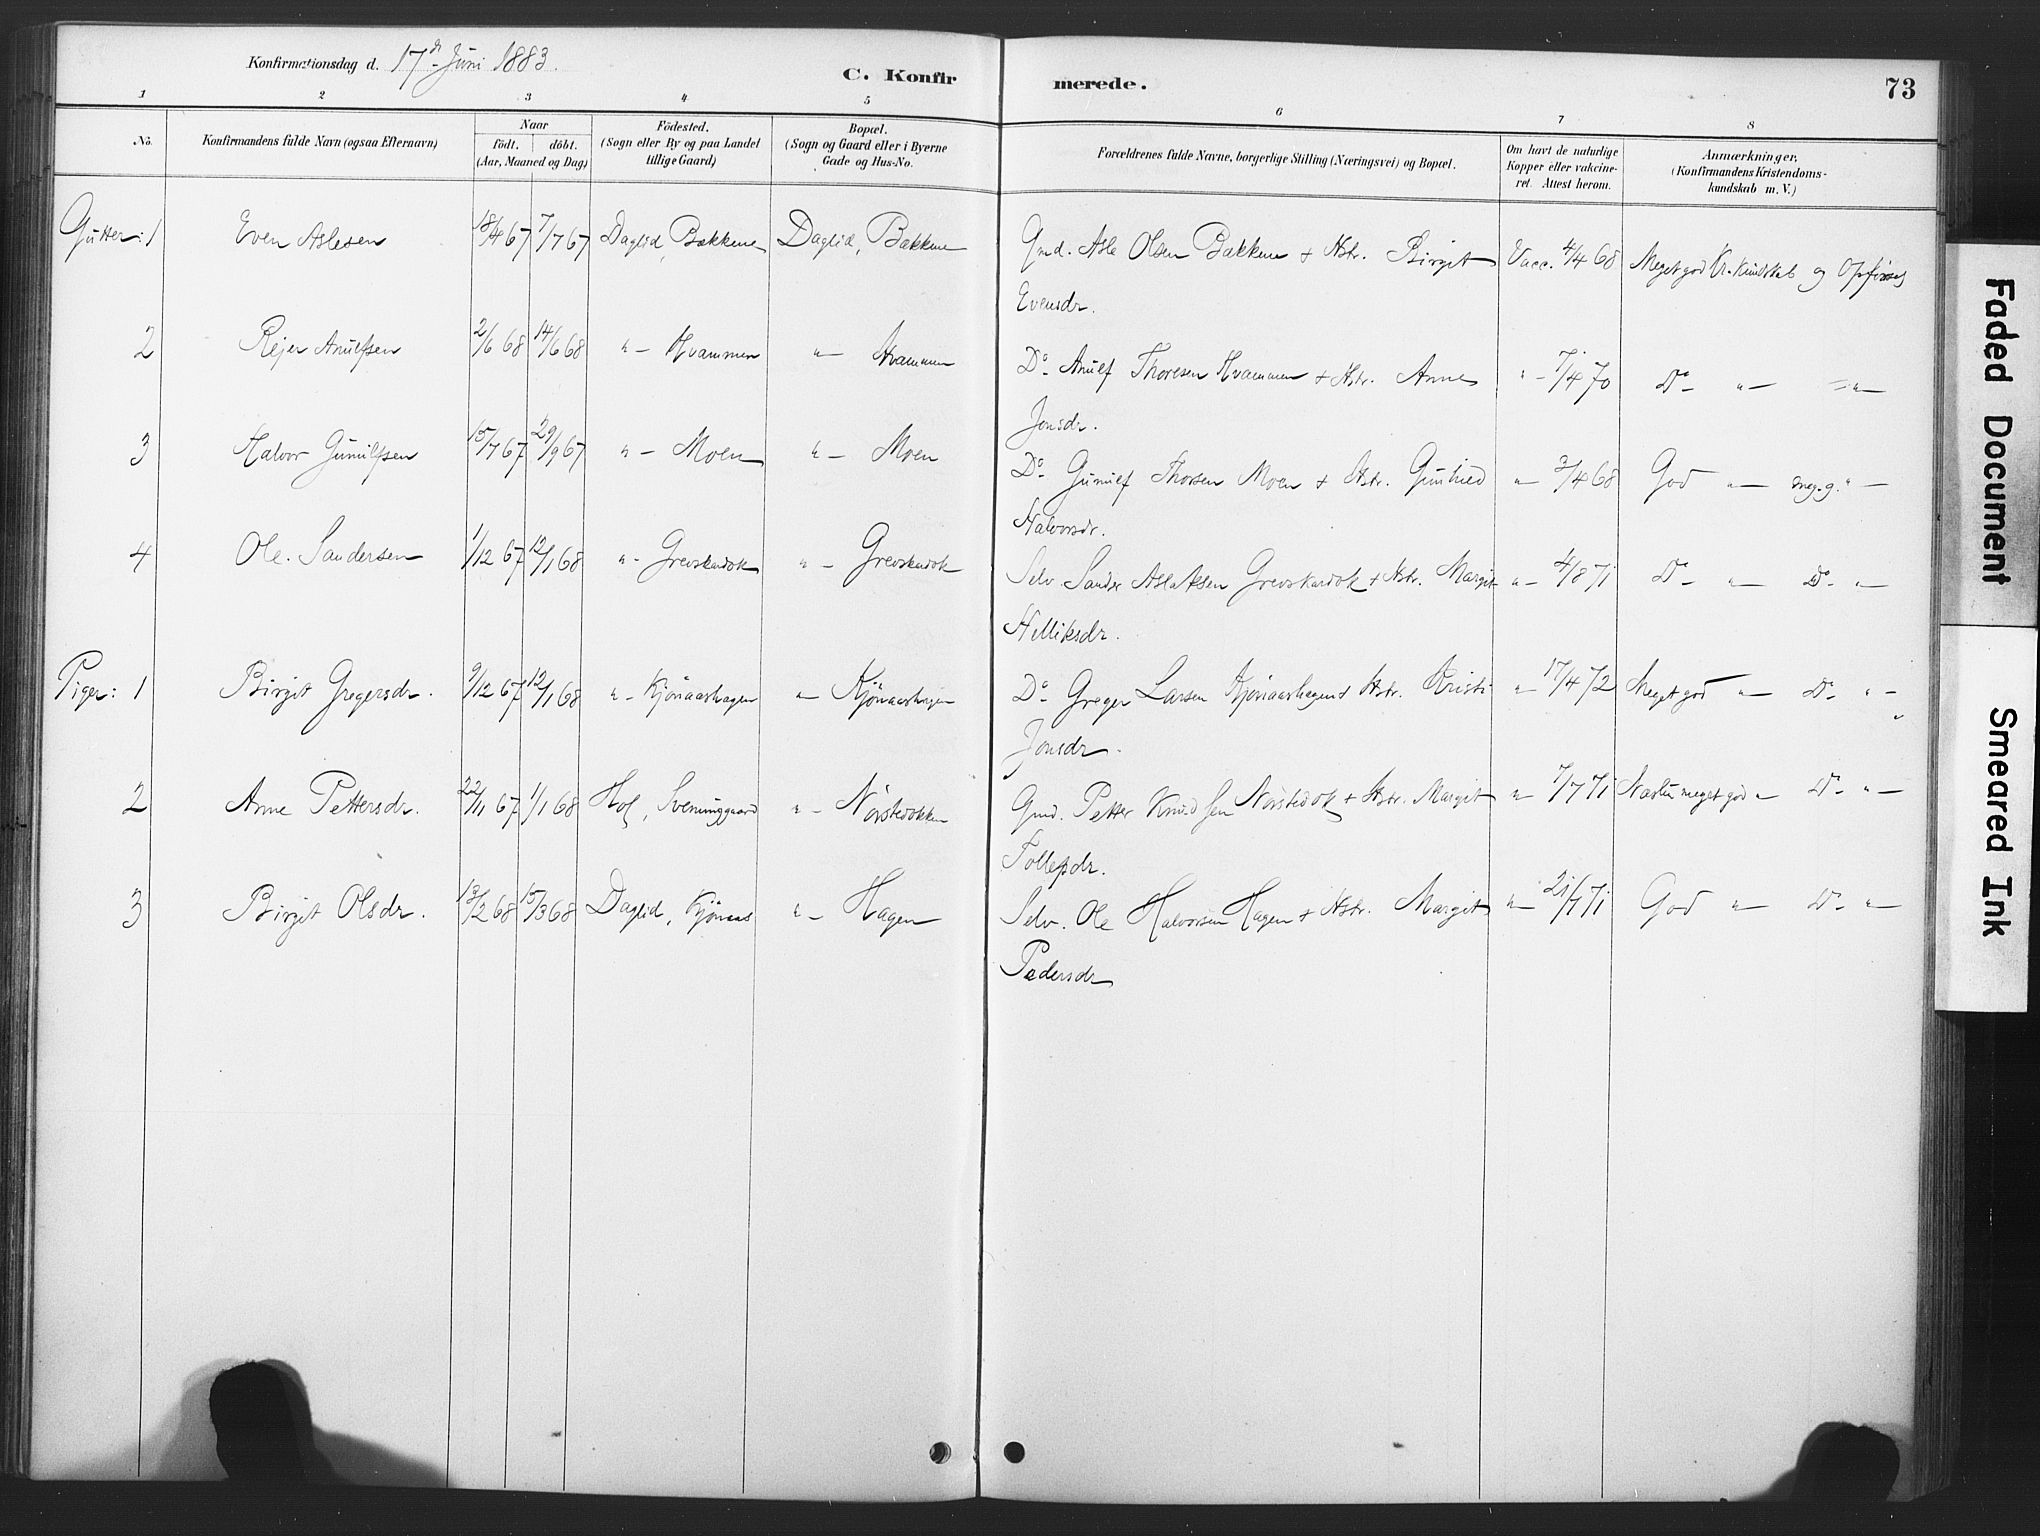 Konfirmationsdag d. 17de Juni 1883.
C. Konfirmerede.
73
1 2 3 4 5 6 7 8
No.
Konfirmandens fulde Navn (ogsaa Efternavn)
Naar
födt. döbt.
(Aar, Maaned og Dag)
Födested.
(Sogn eller By og paa Landet
tillige Gaard)
Bopæl.
(Sogn og Gaard eller i Byerne
Gade og Hus-No.
Forældrenes fulde Navne, borgerlige Stilling (Næringsvei) og Bopæl.
Om havt de naturlige
Kopper eller vakcine-
ret. Attest herom.
Anmærkninger,
(Konfirmandens Kristendoms-
kundskab m. V.)
Gutter: 1 Even Aslesen 18/4 67 7/7 67 Daglid, Bækkene Daglid, Bækkene Gmd. Asle Olsen Bækkene + Hstr. Birgit Vacc. 4/4 68 Meget god Kr. Kundskab og Opførsel
Evensdr.
2 Rejer Anulfsen 2/6 68 14/6 68 " - Hvammen " - Hvammen Do - Anulf Thoresen Hvammen + Hstr. Anne " - 7/4 70 Do - " - " -
Jonsdr.
3 Halvor Gunulfsen 15/7 67 29/9 67 " - Moen " - Moen Do - Gunulf Thorsen Moen + Hstr. Gunhild " - 3/4 68 God " - meg. g. " -
Halvorsdr.
4 Ole Sandersen 1/12 67 12/1 68 " - Grevskardok " - Grevskardok Selv. Sander Aslaksen Grevskardok + Hstr. Margit " - 4/8 71 Do - " - Do - " -
Helliksdr.
Piger: 1 Birgit Gregersdr. 9/12 67 12/1 68 " - Kjønaashagen " - Kjønaashagen Do - Greger Larsen Kjønaashagen + Hstr. Kristi " - 17/4 72 Meget god " - Do - " -
Jonsdr.
2 Anne Pettersdr. 22/11 67 1/1 68 Hol, Sveinunggaard " - Nørstedokken Gmd. Petter Knudsen Nørstedok + Hstr. Margit " - 7/7 71 Næsten meget god " - Do - " -
Tollefsdr.
3 Birgit Olsdr. 13/2 68 15/3 68 Daglid, Kjønaas " - Hagen Selv. Ole Halvorsen Hagen + Hstr. Margit " - 21/7 71 God " - Do - " -
Pedersdr
Faded Document
Smeared Ink